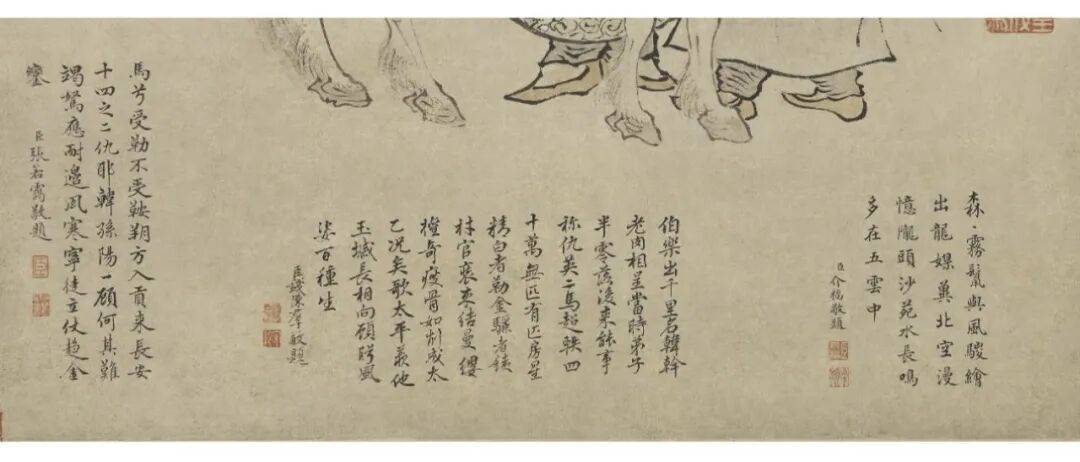 森〻霧鬣與風騣繪
出龍媒冀北空漫
憶隴頭沙苑水長鳴
多在五雲中
臣介福敬題
伯樂出千里名韓幹
老肉相呈當時弟子
半零落後來能事
称仇英二馬超軼四
十萬無匹有匹房星
精白者勒金騵者
官裹束結曼纓
權奇瘦骨如削成太
乙況矣歌太平義他
玉城長相向顧眄風
姿百種生
臣錢陳羣敬題
馬兮受勒不受鞍朔方入貢來長安
十四之二仇耶韓孫陽一顧何其難
竭駑應耐邉風寒寧徒立仗趨金
鑾
臣張若靄敬題